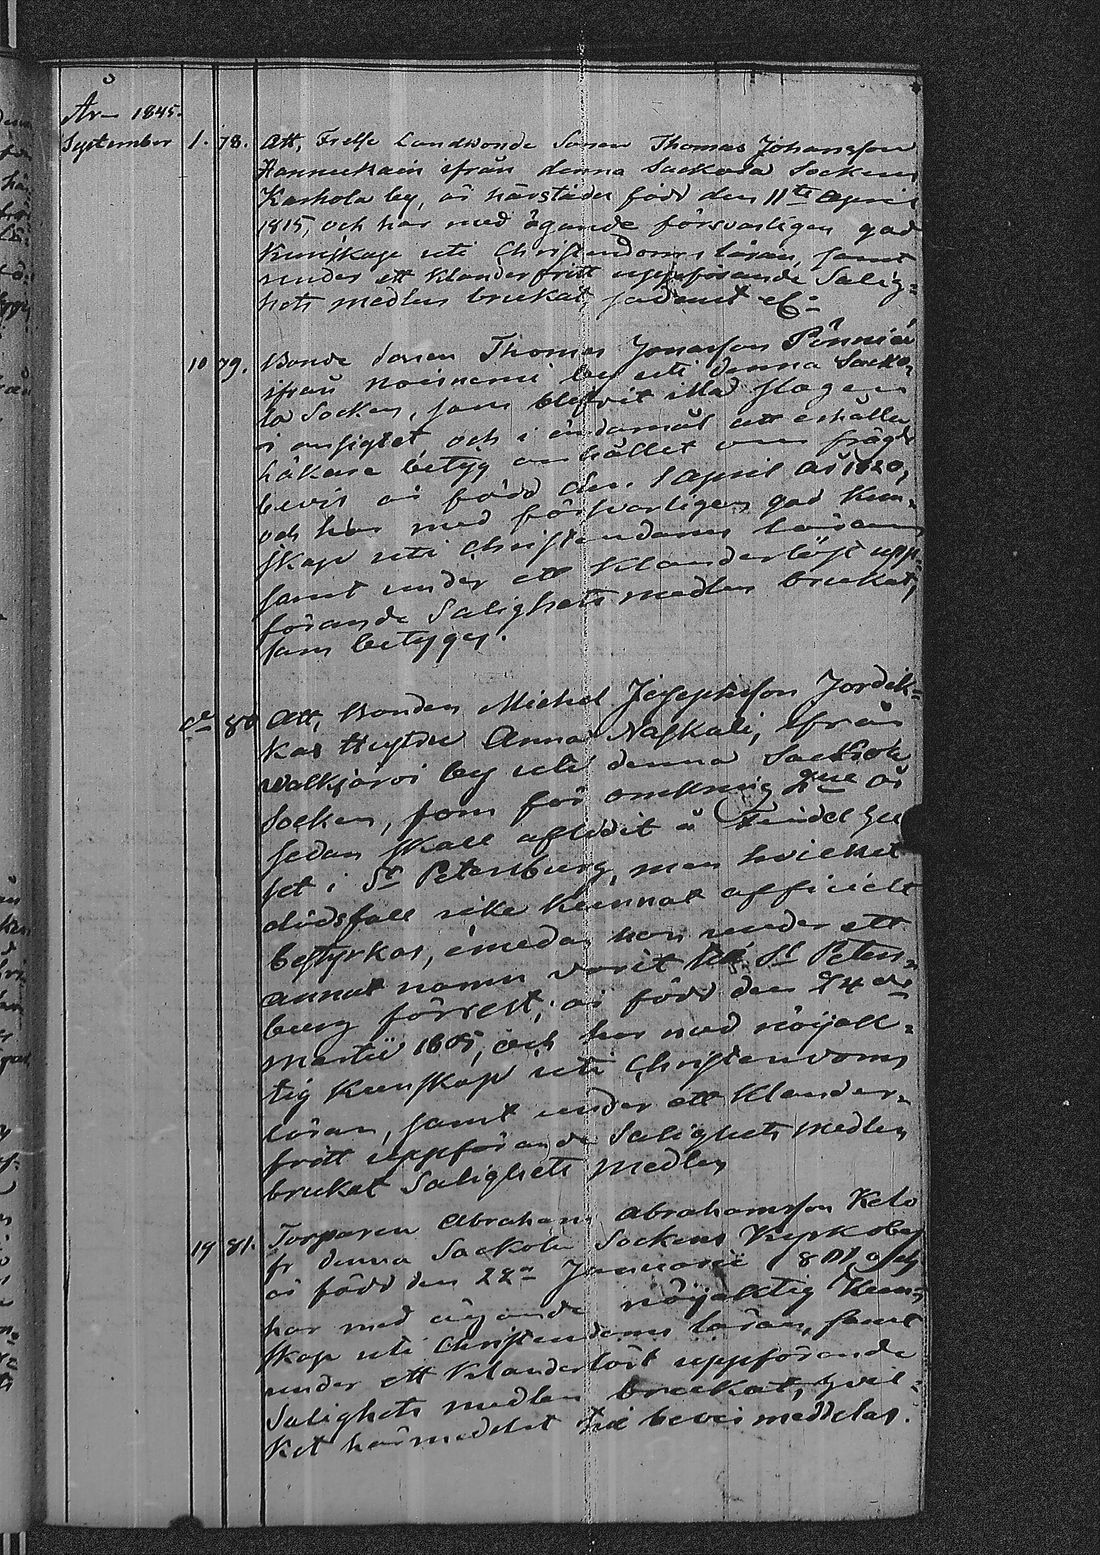 År 1845.
September 1. 78. Att, Frelse Landbonde Sonen Thomas Johansson
Hannukain ifrån denna Sackola Socken
Karhola by, är härstädes född den 11te April
1815, och har med ägande försvarligen god
Kunskap uti Christendoms läran, samt
under ett Klanderfritt uppförande Salig=
hets medlen brukat,
10 79. Bonde Sonen Thomas Jonasson Pönniäi
ifrån Noisniemi by uti denna Sacko=
la Socken, som blifvit illa slagen
i ansigtet och i ändamål att erhålla
läkare betyg anhållet om frägde
bevis är född den 1 April År 1820,
och har med försvarligen god Kun=
skap uti Christendoms läran
samt under ett Klanderlöst upp=
förande Salighets medlen brukat,
som betygas.
do 80 Att, Bonden Michel Josephsson Jordik=
kas Hustru Anna Naskali, ifrån
Walkjärvi by uti denna Sackola
Socken, som för omkring 2ne år
sedan skall aflidit å Hu
set i St Petersburg, men hvilket
dödsfall icke kunnat officielt
bestyrkas, emedan hon under ett
annat namn varit till St Peters=
burg förrest; är född den 24de
Martii 1805, och har med nöjak=
tig Kunskap uti Christendoms
läran, samt under ett Klander=
fritt uppförande Salighets medlen
brukat Salighets medlen
19 81. Torparen Abraham Abrahamsson Keto
fr denna Sackola Sockens by
är född den 22a Januarii 1801, och
har med ägande nöjaktig Kun=
skap uti Christendoms läran, samt
under ett Klanderlöst uppförande
Salighets medlen brukat, hvil=
ket härmedelst till bevis meddelas.